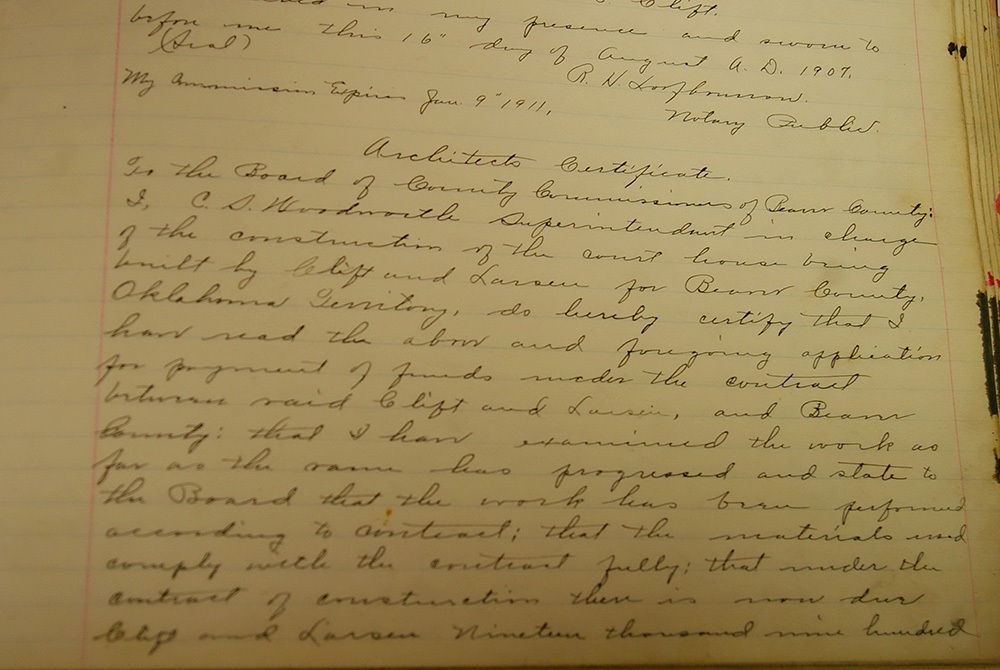 in my presence and sworn to
before me this 16" day of August A. D. 1907.
(Seal)
R. H. Loofbourrow.
My Commission Expires Jan. 9" 1911,
Notary Public.
Architects Certificate.
To the Board of County Commissioners of Beaver County:
I, C. S. Woodworth Superintendent in charge
of the construction of the court house being
built by Clift and Larsen for Beaver County,
Oklahoma Territory, do hereby certify that I
have read the above and foregoing application
for payment of funds under the contract
between said Clift and Larsen, and Beaver
County: that I have examined the work as
far as the same has progressed and state to
the Board that the work has been performed
according to contract; that the materials used
comply with the contract fully; that under the
contract of construction there is now due
Clift and Larsen Nineteen thousand nine hundred